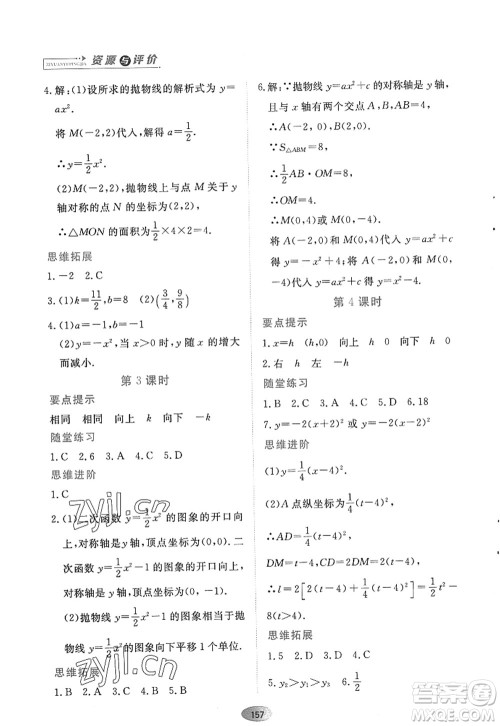 资源与评价
ZIYUANYUPINGJIA
4.解：(1)设所求的抛物线的解析式为 y=
ax².
将 M(-2,2)代入，得 2=4a.
∴y=1/2x².
(2)M(-2,2)，抛物线上与点 M 关于 y
轴对称的点 N 的坐标为(2,2)，
∴△MON 的面积为1/2×4×2=4.
思维拓展
1.-2 2.C
3.(1)k=11/2,b=8 (2)(3/4,9/8)
4.(1)a=-1,m=-1.
(2)y=-x²，当 x>0 时，y 随 x 的增大
而减小.
第 3 课时
要点提示
相同 相同 向上 k 向下 -k
随堂练习
1.C 2.6 3.A 4.C 5.D
思维进阶
1.C
2.(1)二次函数 y=1/2x² 的图象的开口向
上，对称轴是 y 轴，顶点坐标为(0,0).
二次函数 y=1/2x²-1 的图象的开口向
上，对称轴是 y 轴，顶点坐标为(0,-1).
(2)抛物线 y=1/2x²-1 的图象与抛物
线 y=1/2x² 的图象向下平移 1 个单位.
思维拓展
1.B 2.C 3.D 4.B 5.C
6.解：∵抛物线 y=ax²+c 的对称轴是 y 轴，
且与 x 轴有两个交点 A(-2,0)，
∴B(2,0).
∵S△ABM=8，
∴1/2AB·OM=8，
∴OM=4.
∴M(0,4)或 M(0,-4).
将 A(-2,0)，M(0,4)代入 y=ax²+c
得 y=-x²+4.
将 A(-2,0)，M(0,-4)代入 y=ax²+
c 得 y=x²-4.
第 4 课时
要点提示
1.x=h (h,0) h h
2.右 h 左 -h
随堂练习
1.B 2.D 3.A 4.C 5.D 6.18
7.y=-(x+1)² 或 y=-(x-5)²
思维进阶
(1)y=1/2(x-4)².
(2)A 点纵坐标为1/2(t-4)²，
∴AD=1/2(t-4)²，
DM=t-4，CD=2(t-4)，
∴l=2[1/2(t-4)²+2(t-4)]=t²-4t
(t>4).
思维拓展
1.C 2.A 3.D 4.D
5.y₂>y₃>y₁ 6.1/2
157